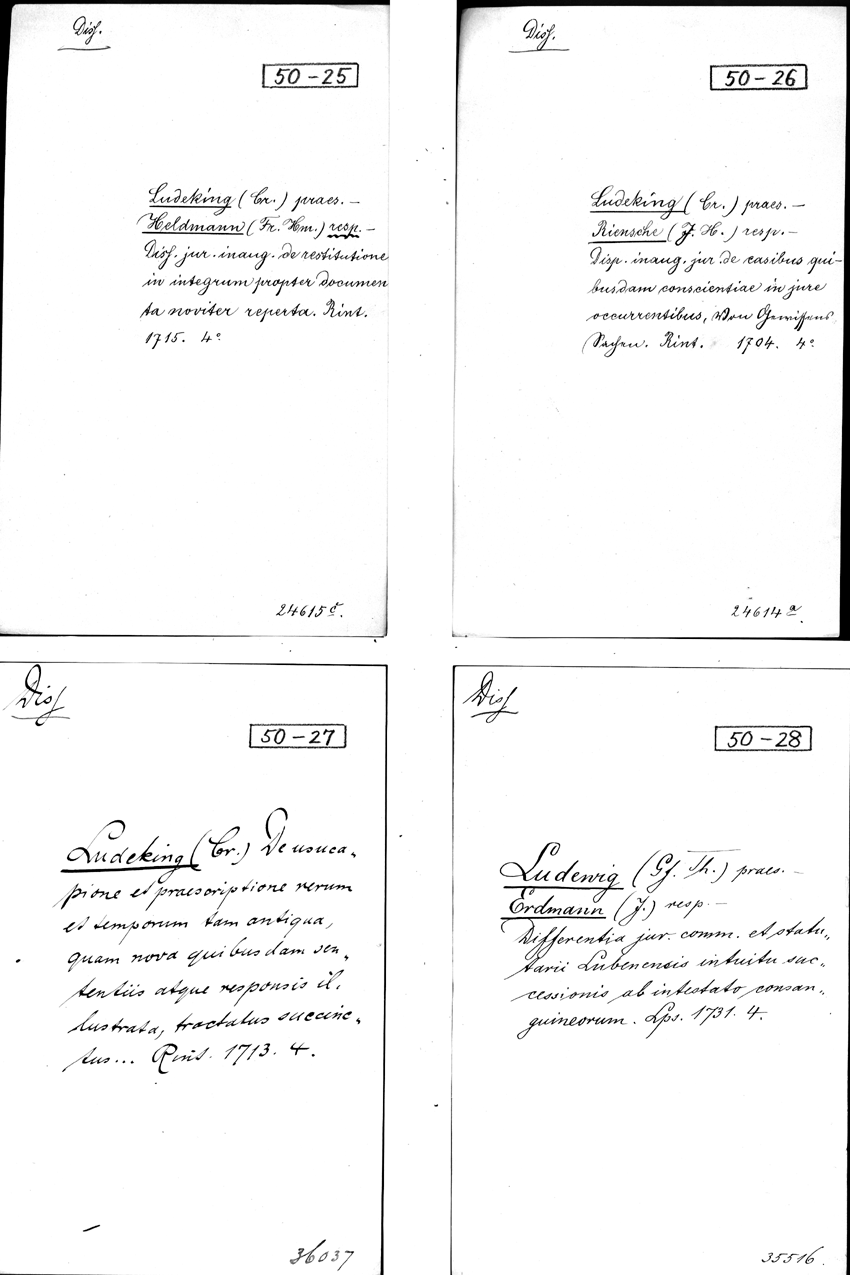 Diss.
50-25
Ludeking (Cr.) praes. —
Heldmann (Fr. Hm.) resp. —
Diss. jur. inaug. de restitutione
in integrum propter documen
ta noviter reperta. Rint.
1715. 4°
24615 c.
Diss.
50-26
Ludeking (Cr.) praes. —
Riensche (J. H.) resp. —
Disp. inaug. jur. de casibus qui-
busdam conscientiae in jure
occurrentibus, Von Gewissens
Sachen. Rint. 1704. 4°
24614 a.
Diss
50-27
Ludeking (Cr.) De usuca„
pione et praescriptione rerum
et temporum tam antiqua,
quam nova quibusdam sen„
tentiis atque responsis il„
lustrata, tractatus succinc„
tus... Rint. 1713. 4.
36037
Diss
50-28
Ludewig (Gf. Th.) praes. —
Erdmann (J.) resp. —
Differentia jur. comm. et statu„
tarii Lubenensis intuitu suc„
cessionis ab intestato consan„
guineorum. Lps. 1731. 4.
35516